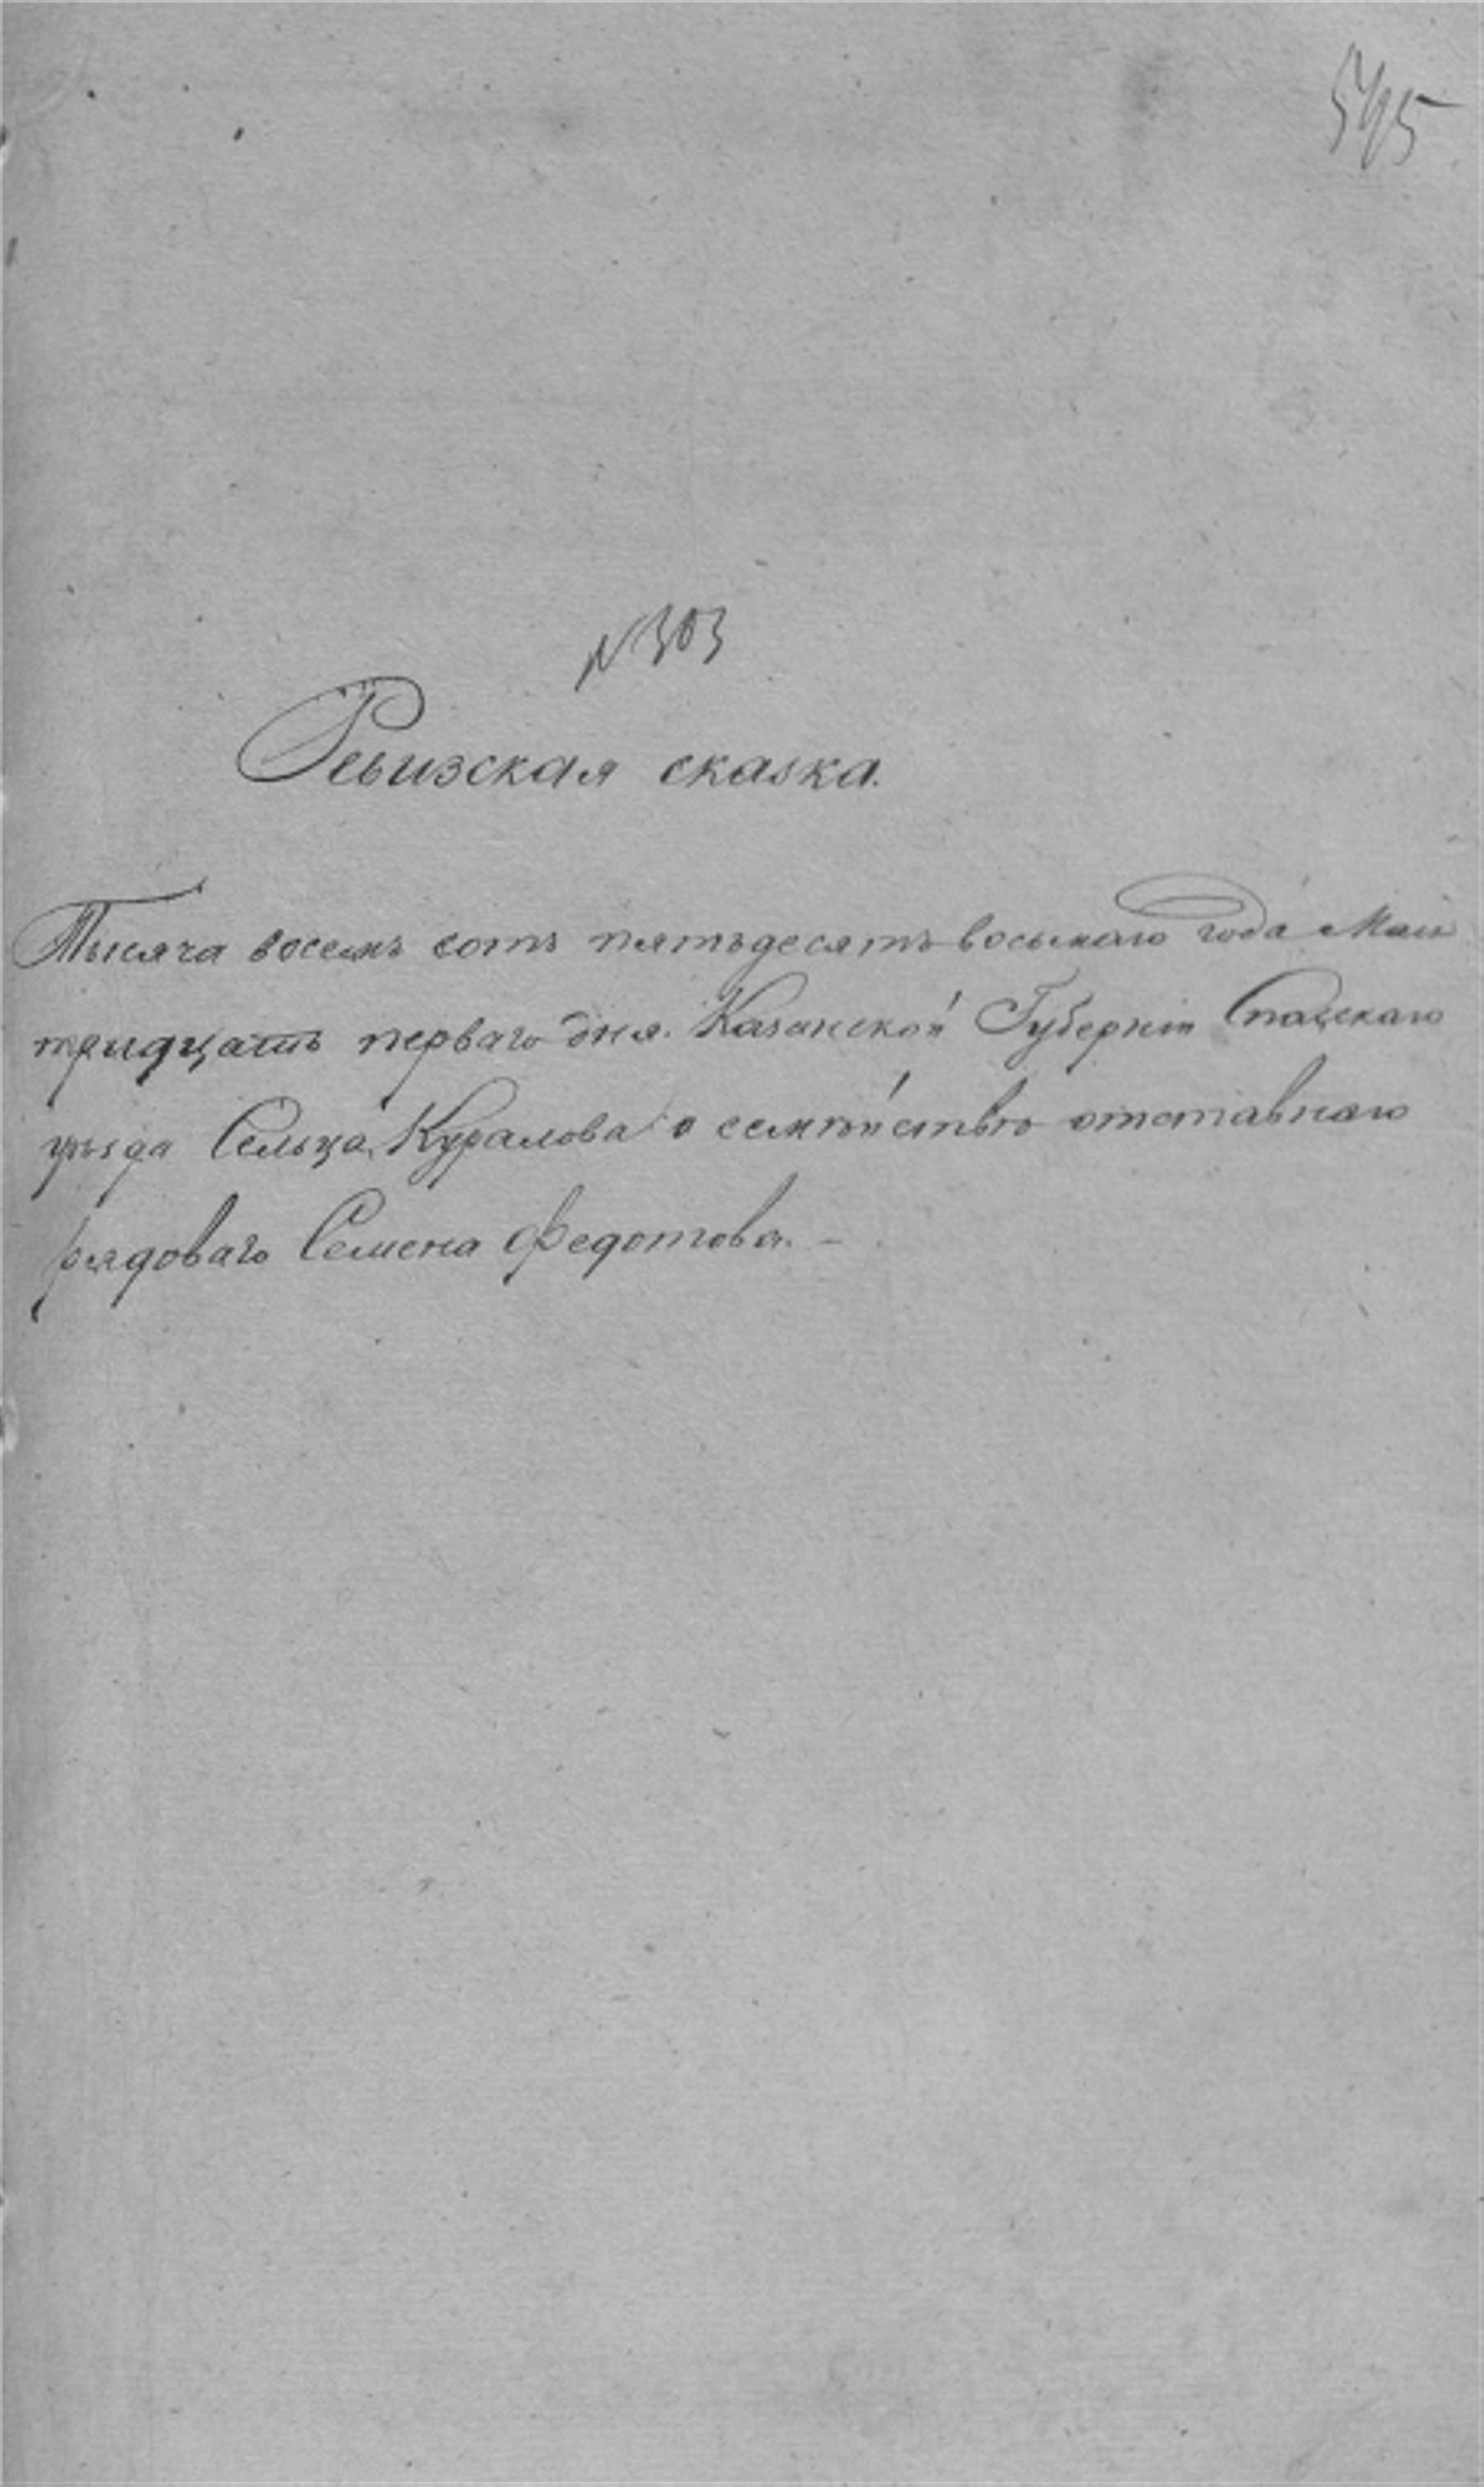 595
N 303
Ревизская сказка.
Тысяча восемь сотъ пятьдесятъ восьмаго года Маія
тридцать перваго дня. Казанской Губерніи Спаскаго
уѣзда Сельца Куралова о семѣйствѣ отставнаго
рядоваго Семена Федотова. –